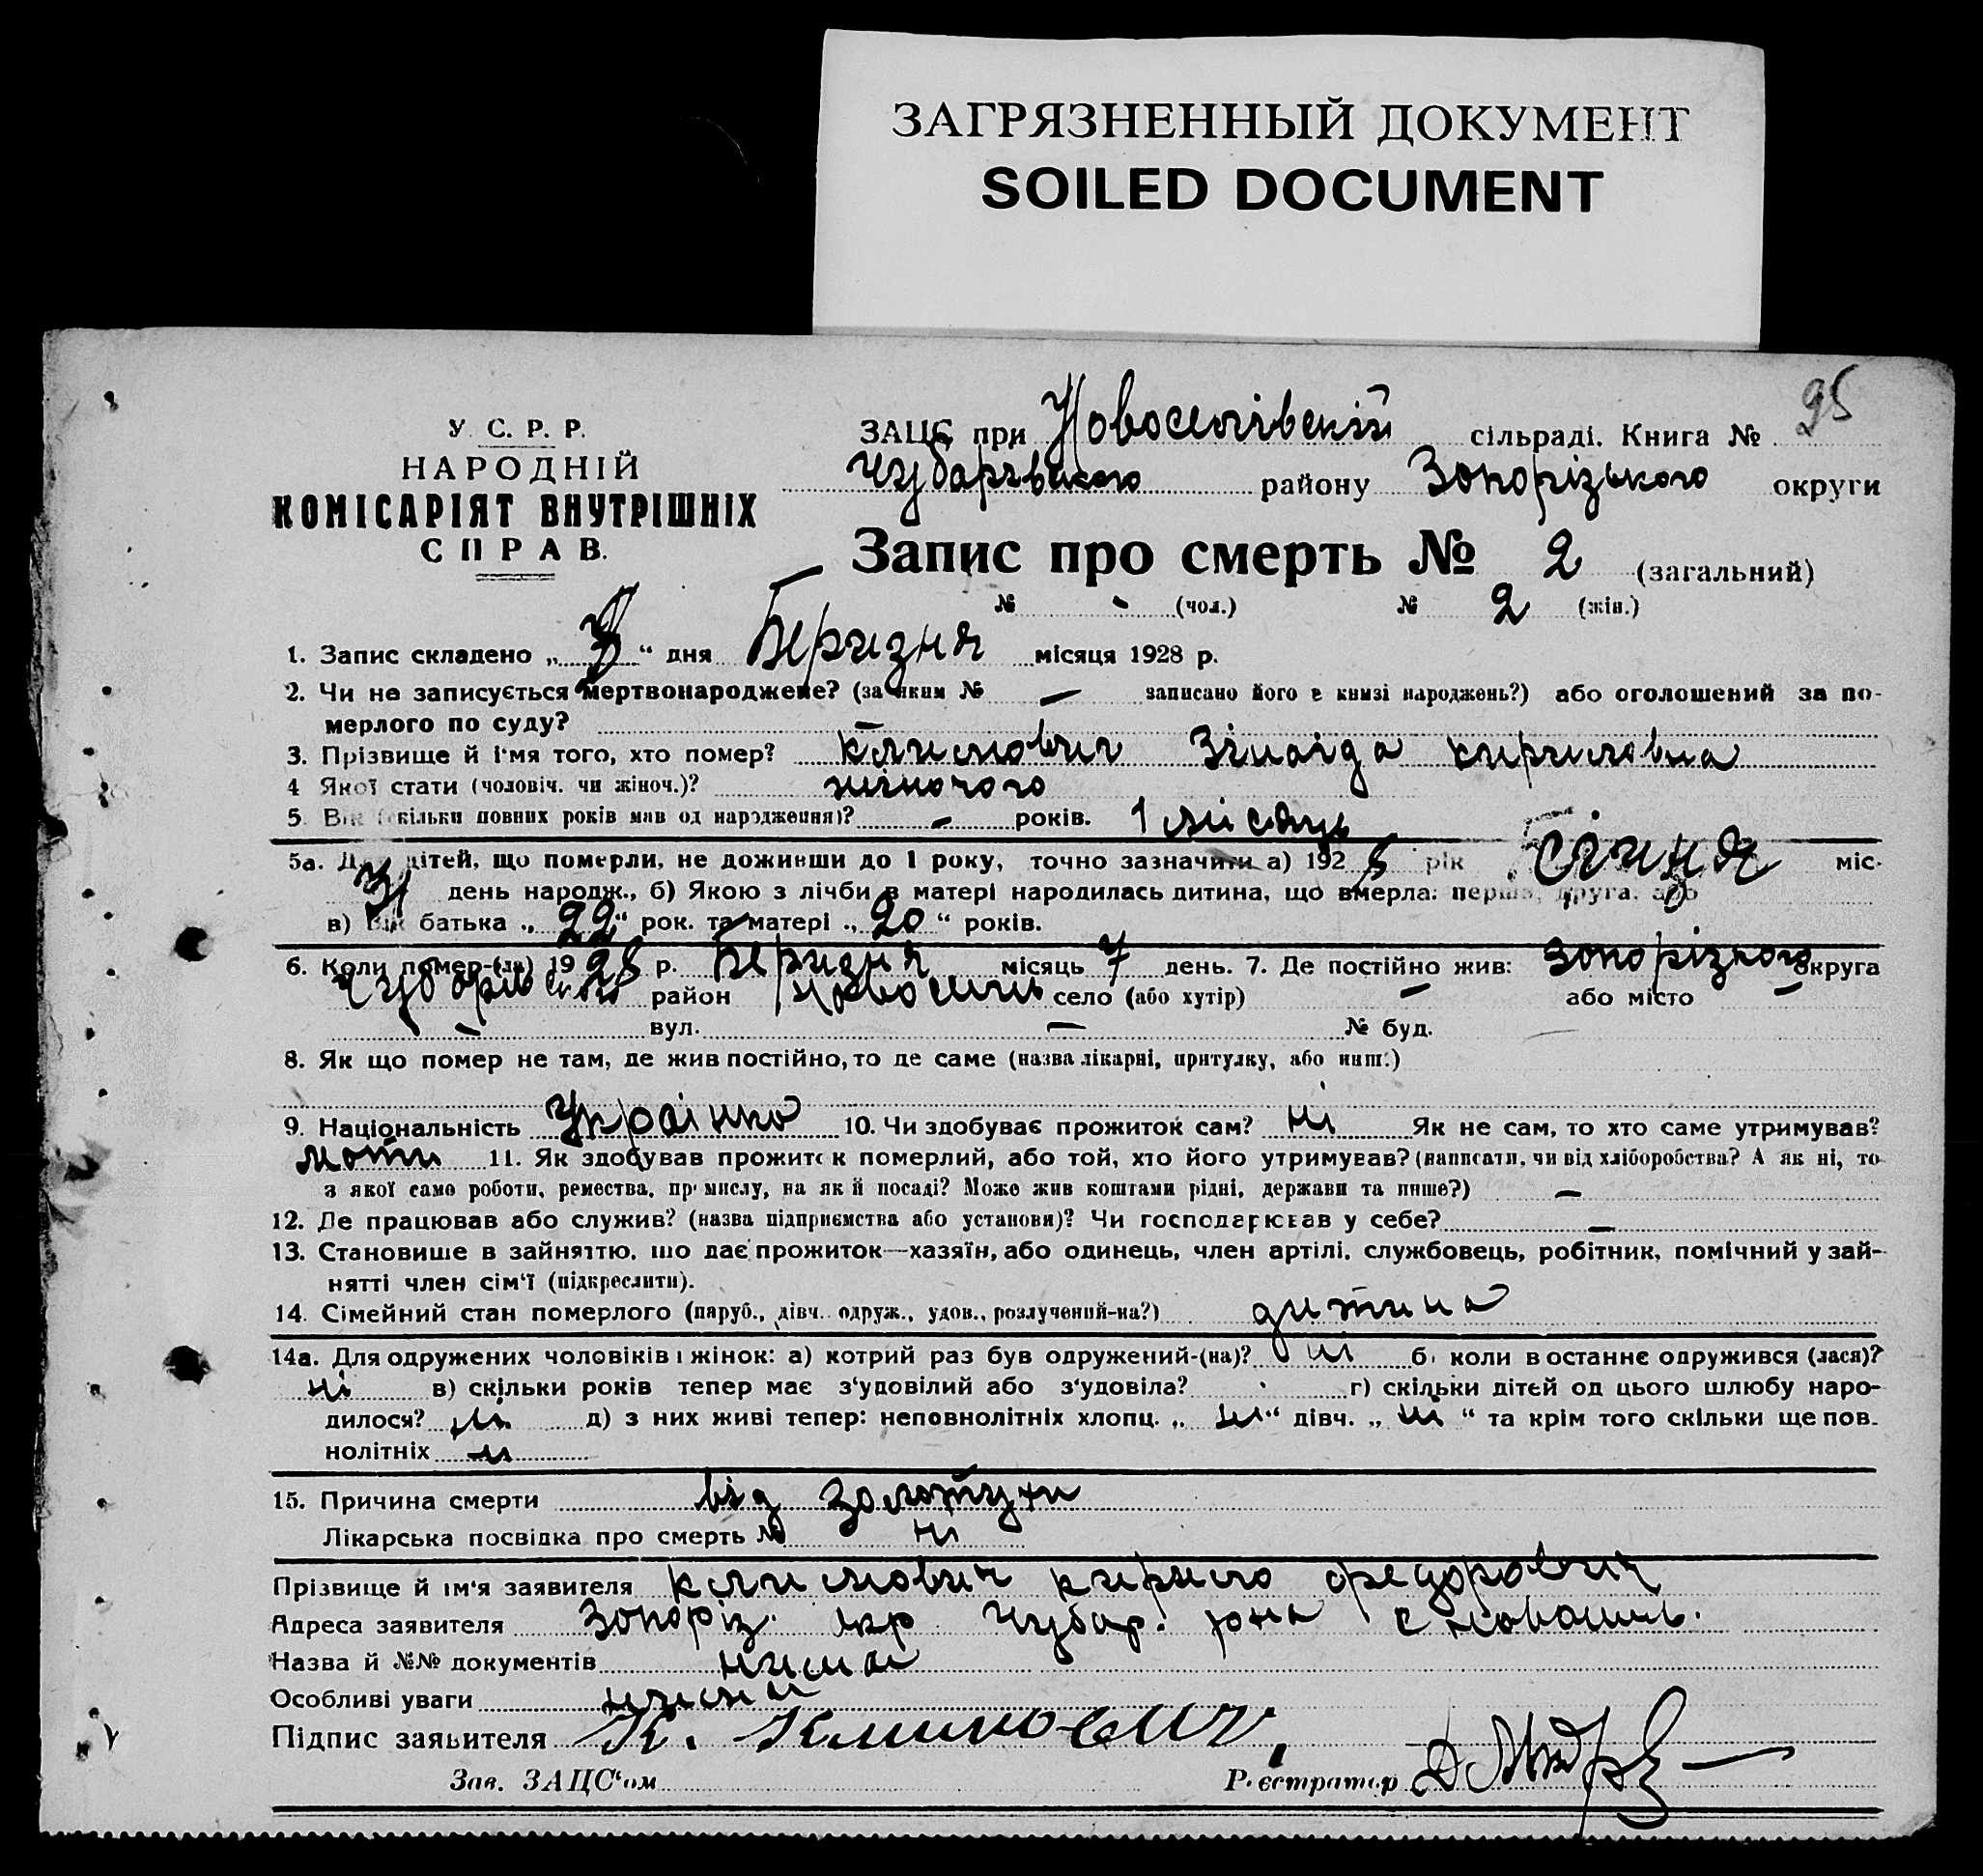 ЗАГРЯЗНЕННЫЙ ДОКУМЕНТ
SOILED DOCUMENT
95
У. С. Р. Р.
НАРОДНІЙ
КОМІСАРІЯТ ВНУТРІШНІХ
СПРАВ.
ЗАЦС при Новоселівській сільраді. Книга №
Чубарівського району Запорізького округи
Запис про смерть № 2 (загальний)
№ - (чол.) № 2 (жін.)
1. Запис складено „ “ дня Березня місяця 1928 р.
2. Чи не записується мертвонароджене? (за яким № — записано його в книзі народжень?) або оголошений за по-
мерлого по суду? —
3. Прізвище й і'мя того, хто помер? Климович Зінаіда Кириловна
4 Якої стати (чоловіч. чи жіноч.)? жіночого
5. Вік (скільки повних років мав од народження)? - років. 1 місяць
5а. Для дітей, що померли, не доживши до 1 року, точно зазначити а) 1928 рік Січня міс.
31 день народж., б) Якою з лічби в матері народилась дитина, що вмерла: перша, друга, або
в) Вік батька „ 22 “ рок. та матері „ 20 “ років.
6. Коли помер-(ла) 1928 р. Березня місяць 7 день. 7. Де постійно жив: Запорізкого округа
Чубарівського район село (або хутір) — або місто —
— вул. — № буд.
8. Як що помер не там, де жив постійно, то де саме (назва лікарні, притулку, або инш.)
9. Національність Українка 10. Чи здобуває прожиток сам? ні Як не сам, то хто саме утримував?
мати 11. Як здобував прожиток померлий, або той, хто його утримував? (написати, чи від хліборобства? А як ні, то
з якої саме роботи, ремества, промислу, на якій посаді? Може жив коштами рідні, держави та инше?) —
12. Де працював або служив? (назва підприємства або установи)? Чи господарював у себе? —
13. Становище в зайняттю, що дає прожиток—хазяїн, або одинець, член артілі, службовець, робітник, помічний у зай-
нятті член сім'ї (підкреслити).
14. Сімейний стан померлого (паруб., дівч. одруж., удов., розлучений-на?) дитина
14а. Для одружених чоловіків і жінок: а) котрий раз був одружений-(на)? ні б) коли в останнє одружився (лася)?
ні в) скільки років тепер має з'удовілий або з'удовіла? г) скільки дітей од цього шлюбу наро-
дилося? ні д) з них живі тепер: неповнолітніх хлопц. „ ні “ дівч. „ ні “ та крім того скільки ще пов-
нолітніх ні
15. Причина смерти від золотухи
Лікарська посвідка про смерть № ні
Прізвище й ім'я заявителя Климович Кирило Федорович
Адреса заявителя Запоріз. окр Чубар. с
Назва й №№ документів нимає
Особливі уваги нимає
Підпис заявителя К. Климович.
Зав. ЗАЦС'ом Реєстратор